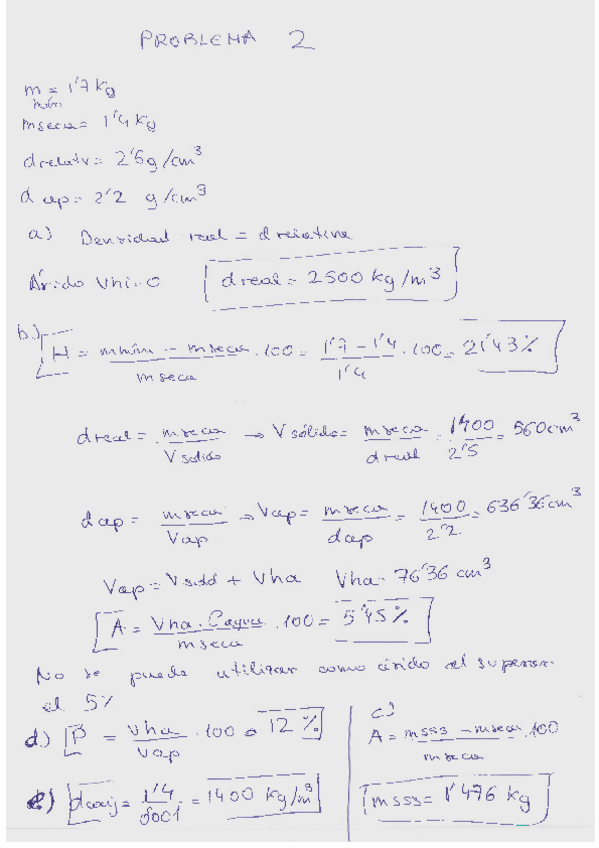 PROBLEMA 2
m = 1'7 kg
húm
mseca = 1'4 kg
drelativ = 2'5 g/cm³
d ap = 2'2 g/cm³
a) Densidad real = d relativa
Árido Vhi = 0 d real = 2500 kg/m³
b) H = mhúm - mseca / mseca · 100 = 1'7 - 1'4 / 1'4 · 100 = 21'43 %
d real = mseca / Vsolido → V sólido = mseca / dreal = 1400 / 2'5 = 560 cm³
d ap = mseca / Vap → Vap = mseca / dap = 1400 / 2'2 = 636'36 cm³
Vap = Vsolid + Vha Vha = 76'36 cm³
A = Vha · ρagua / mseca · 100 = 5'45 %
No se puede utilizar como árido al superar
el 5%
d) P = Vha / Vap · 100 = 12 %
e) dconj = 1'4 / 0'001 = 1400 kg/m³
c)
A = msss - mseca / mseca · 100
msss = 1'476 kg